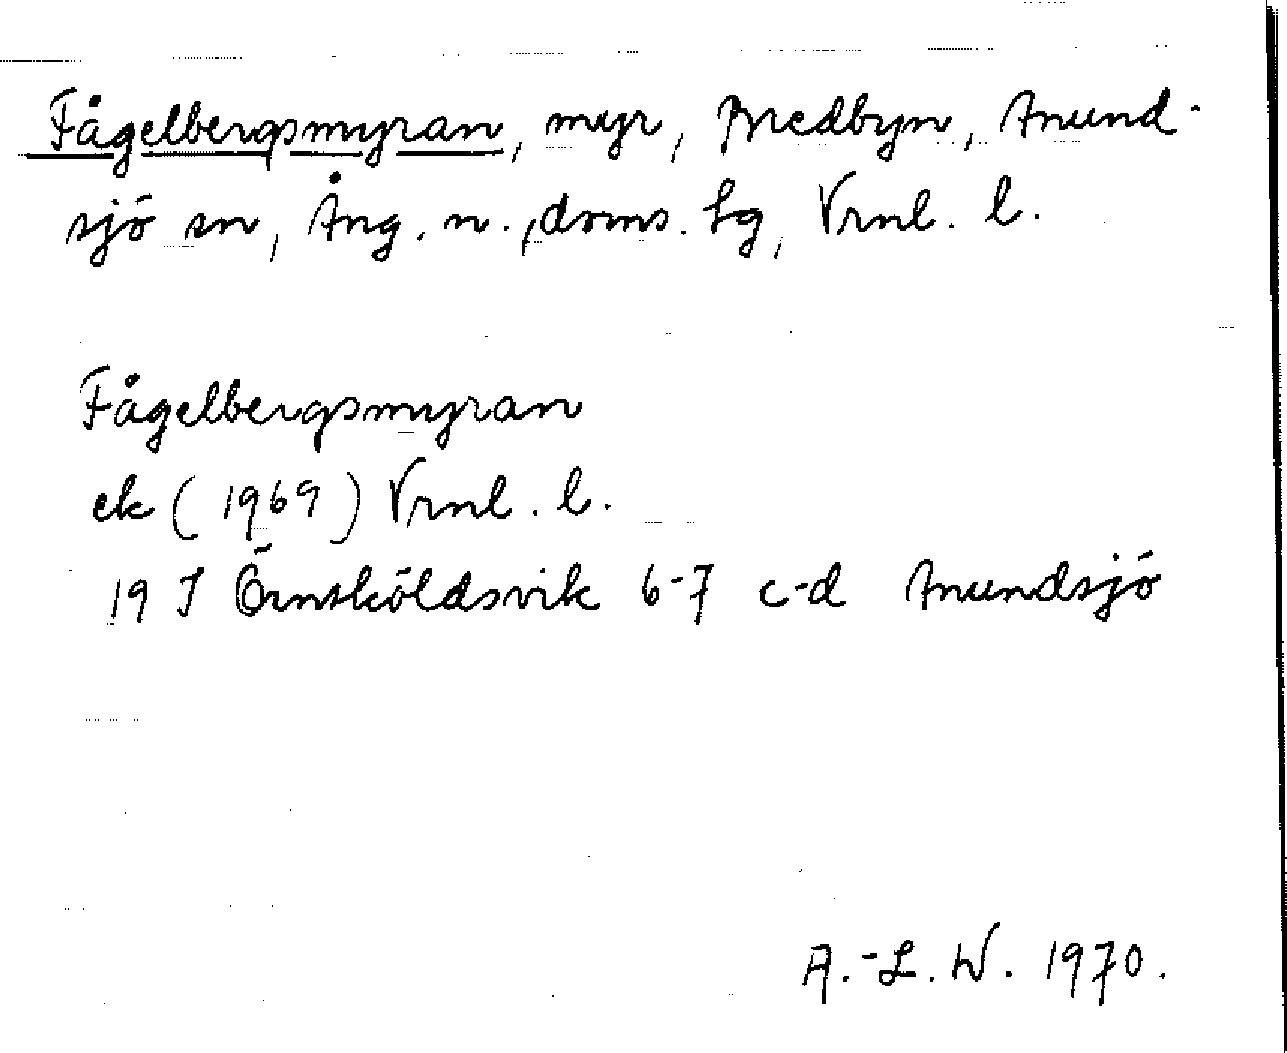 Fågelbergsmyran, myr, Bredbyn, Anund-
sjö sn, Ång. n., doms. hg, Vrnl. l.
Fågelbergsmyran
ek (1969) Vrnl. l.
19 I Örnsköldsvik 6-7 c-d Anundsjö
A.-L. W. 1970.